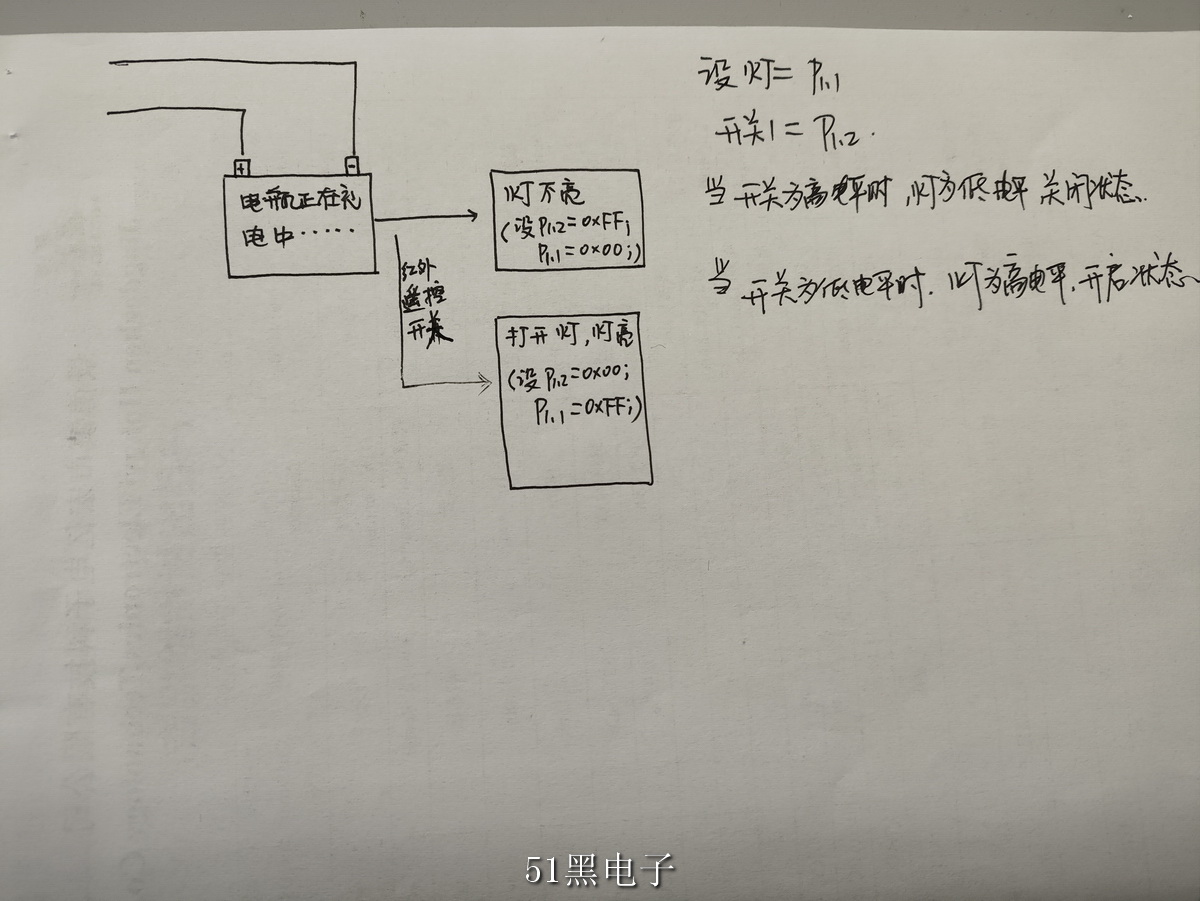 设灯= P1.1
开关1= P1.2.
当开关为高电平时,灯为低电平 关闭状态.
当 开关为低电平时.灯为高电平,开启状态、
+
-
电瓶正在充
电中……
灯不亮
(设P1.2=0xFF;
P1.1=0x00;)
红外
遥控
开关
打开灯,灯亮
(设P1.2=0x00;
P1.1=0xFF;)
51黑电子